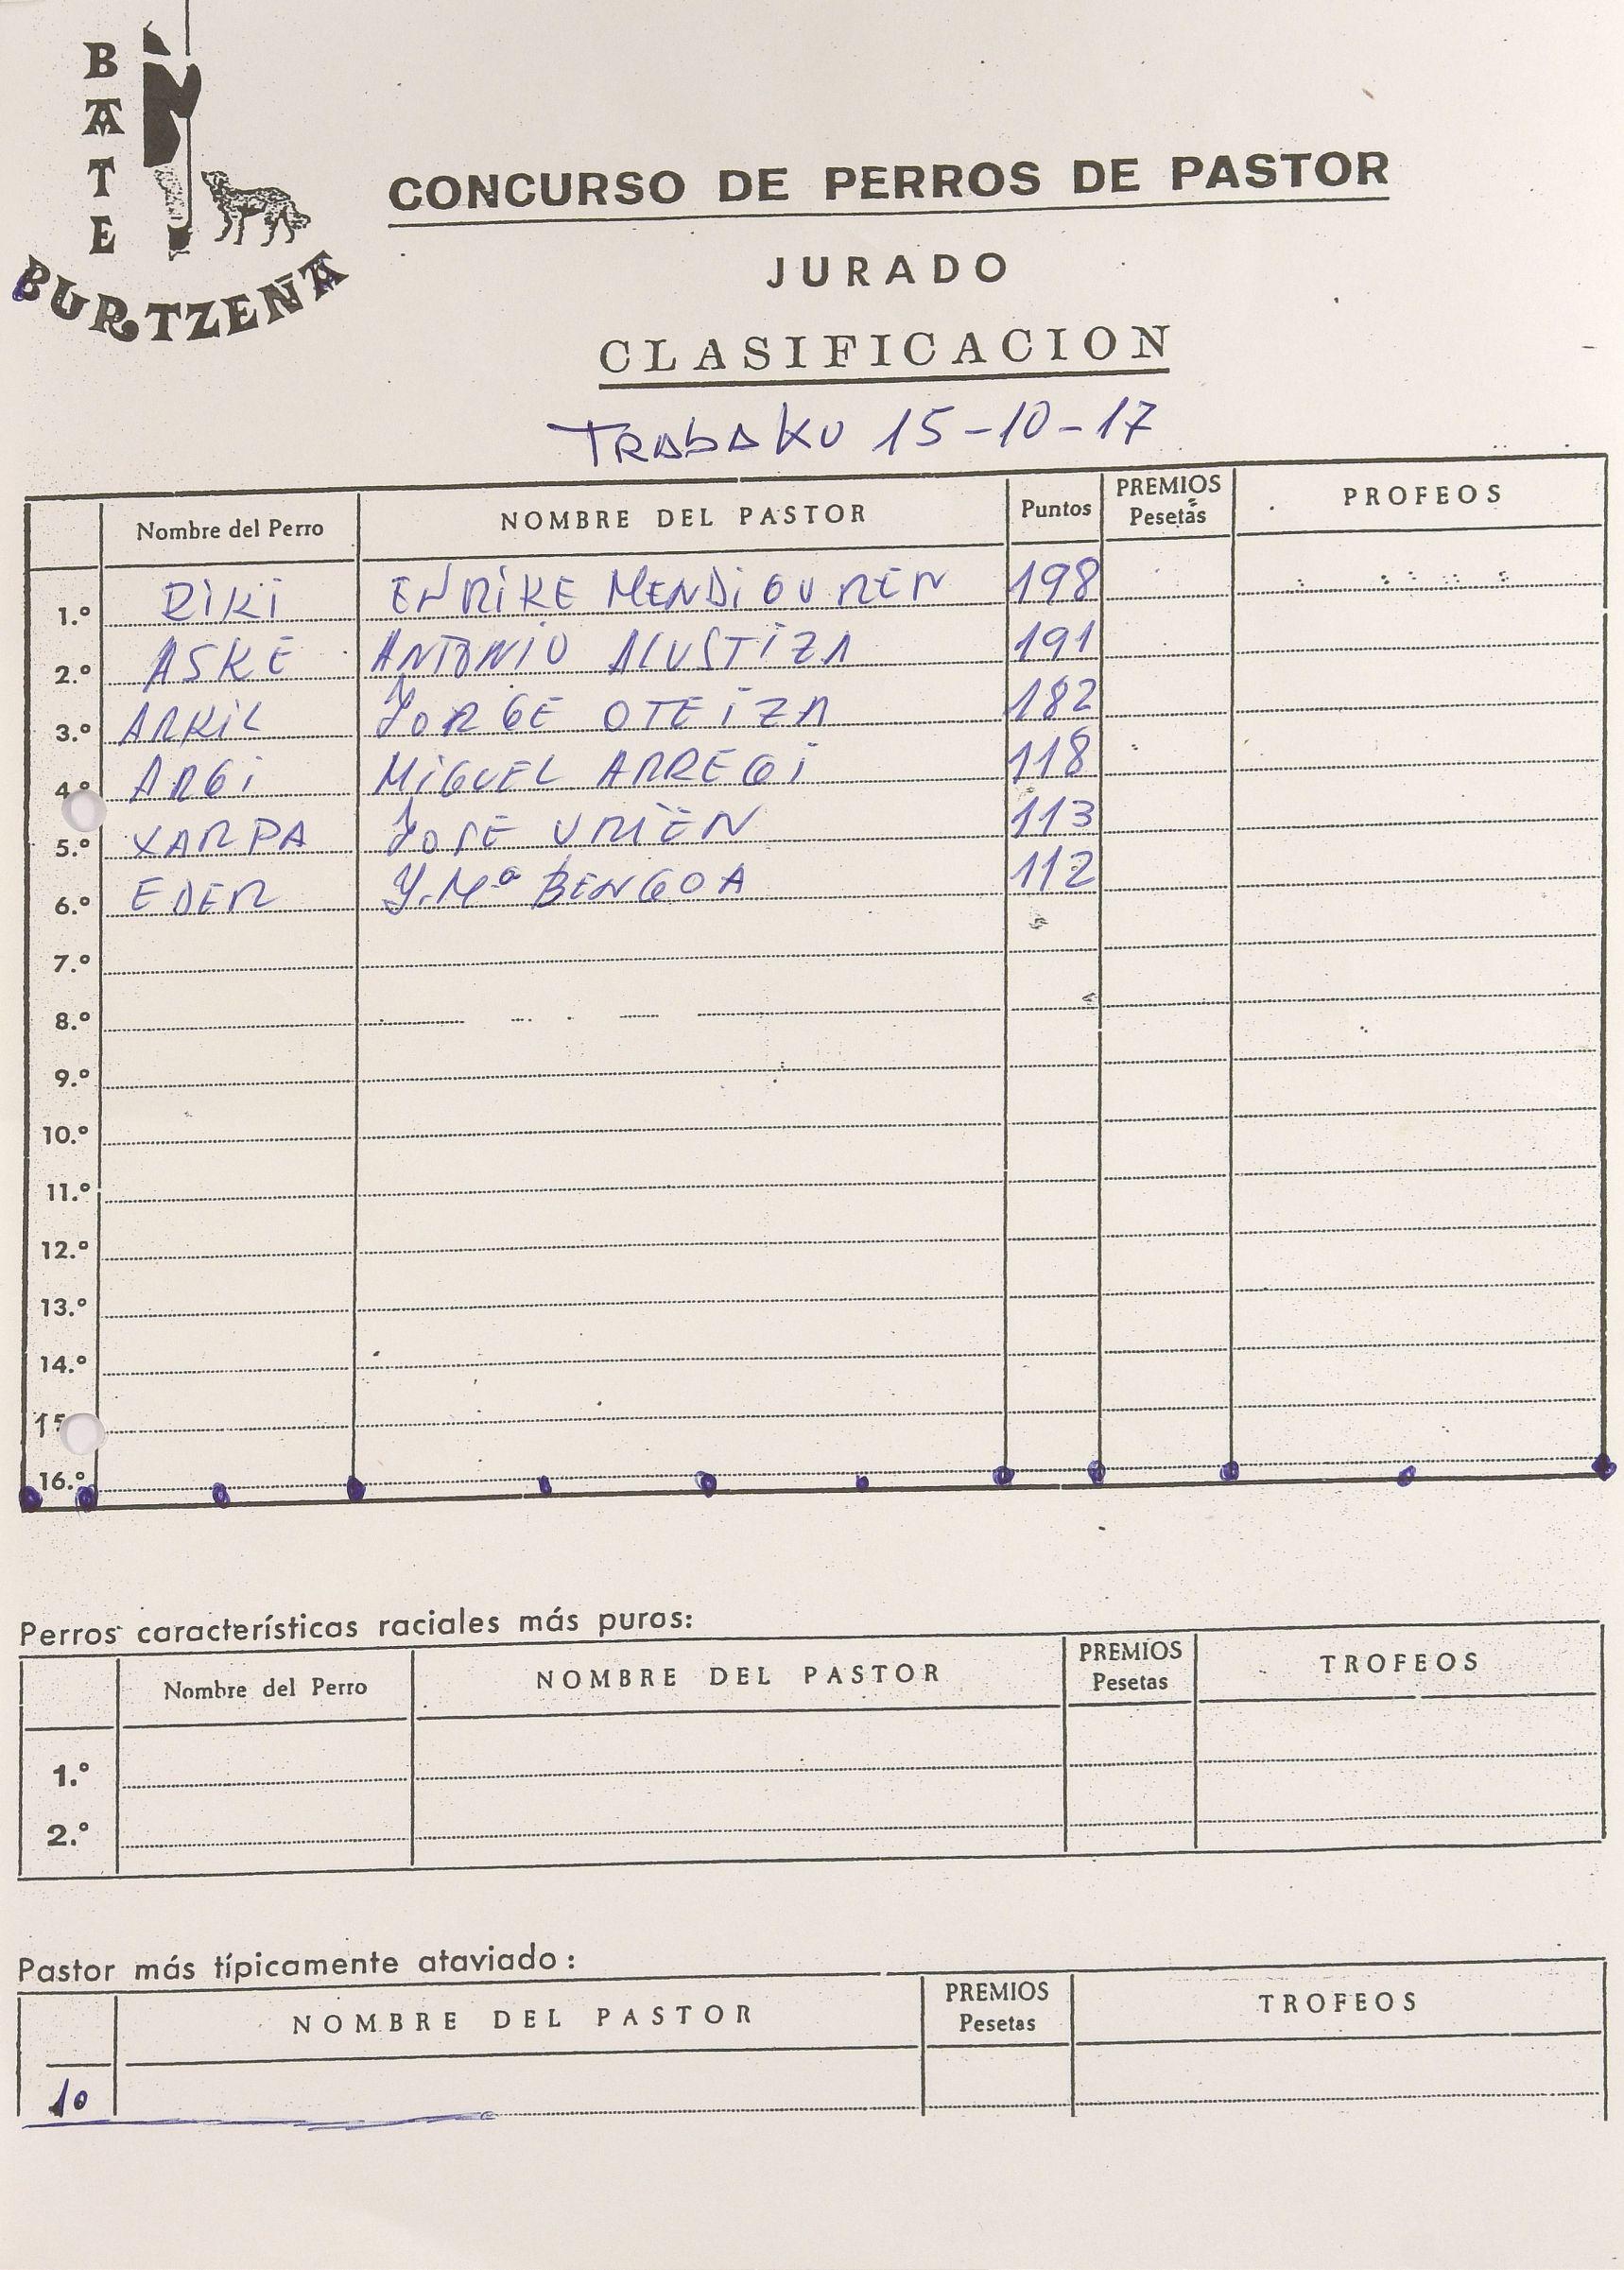 BATE
BURTZENA
CONCURSO DE PERROS DE PASTOR
JURADO
CLASIFICACION
TRABAKU 15-10-17
Nombre del Perro NOMBRE DEL PASTOR Puntos PREMIOS Pesetas PROFEOS
1.º RIKI ENRIKE MENDIGUREN 198
2.º ASKE ANTONIO ALUSTIZA 191
3.º ARKIL JORGE OTEIZA 182
4.º ARGI MIGUEL ARREGI 118
5.º XARPA JOSE URIEN 113
6.º EDER J.Mª BENGOA 112
7.º
8.º
9.º
10.º
11.º
12.º
13.º
14.º
15
16.º
Perros características raciales más puros:
Nombre del Perro NOMBRE DEL PASTOR PREMIOS Pesetas TROFEOS
1.º
2.º
Pastor más típicamente ataviado:
NOMBRE DEL PASTOR PREMIOS Pesetas TROFEOS
1º